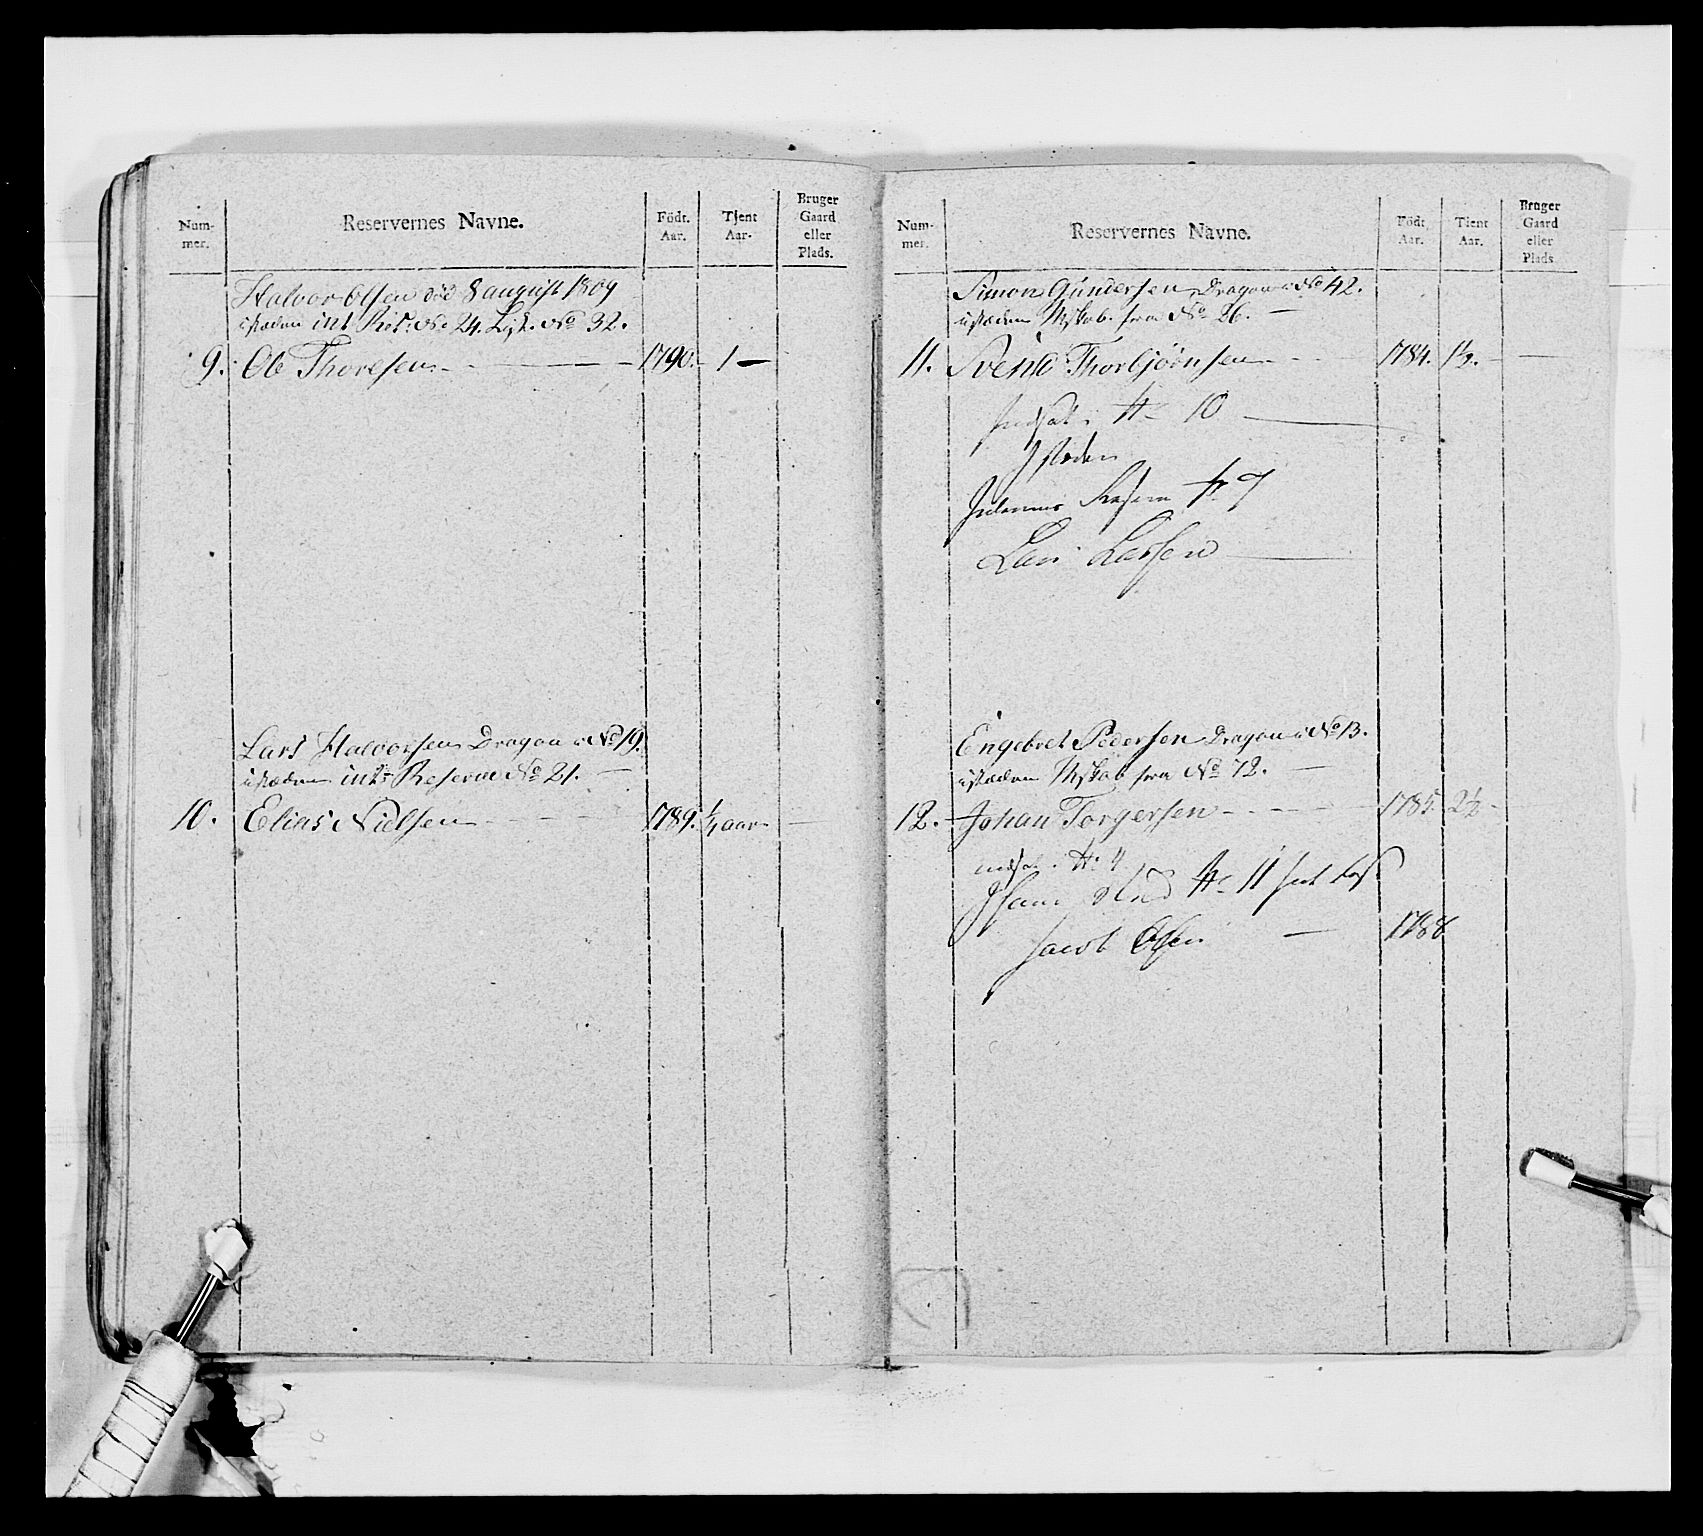 Num-
mer.
Reservernes Navne.
Födt.
Aar.
Tient
Aar.
Bruger
Gaard
eller
Plads.
Halvor Olsen död 8 august 1809
istæden int Res: No 24. List. No 32.
9. Ole Thoresen 1790. 1 —
Lars Halvorsen Dragon i No 19.
istæden int: Reserve No 21. —
10. Elias Nielsen 1789. aar —
Num-
mer.
Reservernes Navne.
Födt
Aar.
Tient
Aar.
Bruger
Gaard
eller
Plads.
Simon Gundersen Dragon i No 42.
istæden Mskab. fra No 26. —
11. Svend Thorbjörnsen 1784. 1½. —
Indsat i No 10 —
Istæden
No 7
Lars Larsen —
Engebret Pedersen Dragon i No 13.
istæden Mskab fra No 72. —
12. Johan Torgersen 1785. 2½
indsat i No 4
No 11
Jacob Olsen — 1788